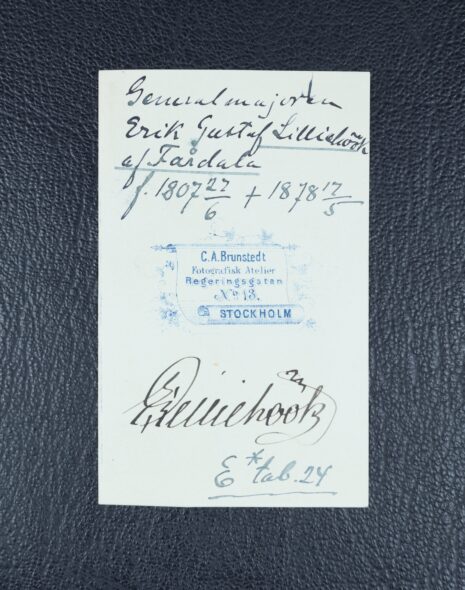 Generalmajoren
Erik Gustaf Lilliehöök
af Fårdala
f. 1807 27/6 + 1878 17/5
C.A. Brunstedt
Fotografisk Atelier
Regeringsgatan
No 13.
STOCKHOLM
Lilliehöök
E* tab. 24